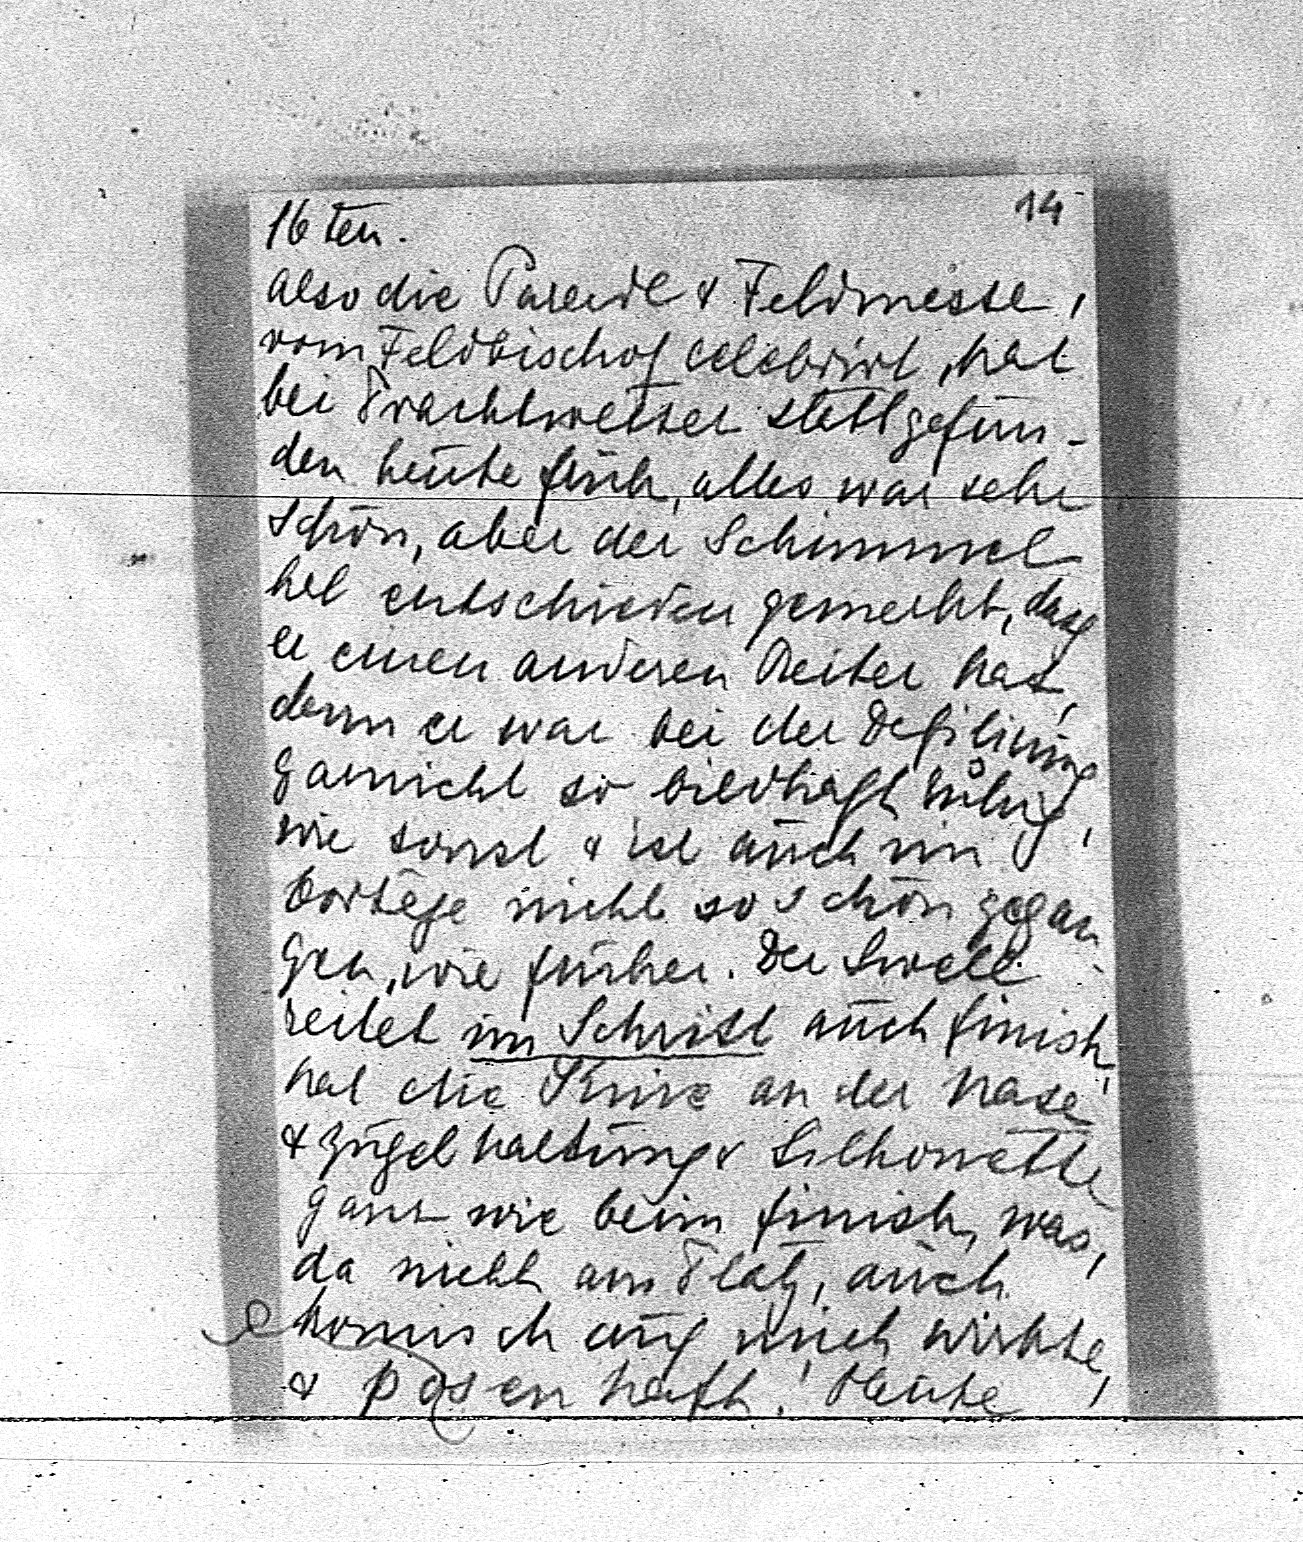 16ten. 14
also die Parade & Feldmesse,
vom Feldbischof celebrirt, hat
bei Prachtwetter stattgefun-
den heute früh, alles war sehr
schön, aber der Schimmel
hat entschieden gemerkt, dass
er einen anderen Reiter hat,
denn er war bei der Defilirung
garnicht so bildhaft ruhig,
wie sonst & ist auch im
Cortège nicht so schön gegan
gen, wie früher. Der
reitet im Schritt auch finish,
hat die Knie an der Nase
& Zügelhaltung & Silhouette
ganz wie beim finish, was,
da nicht am Platz, auch
komisch auf mich wirkte,
& posenhaft! Heute